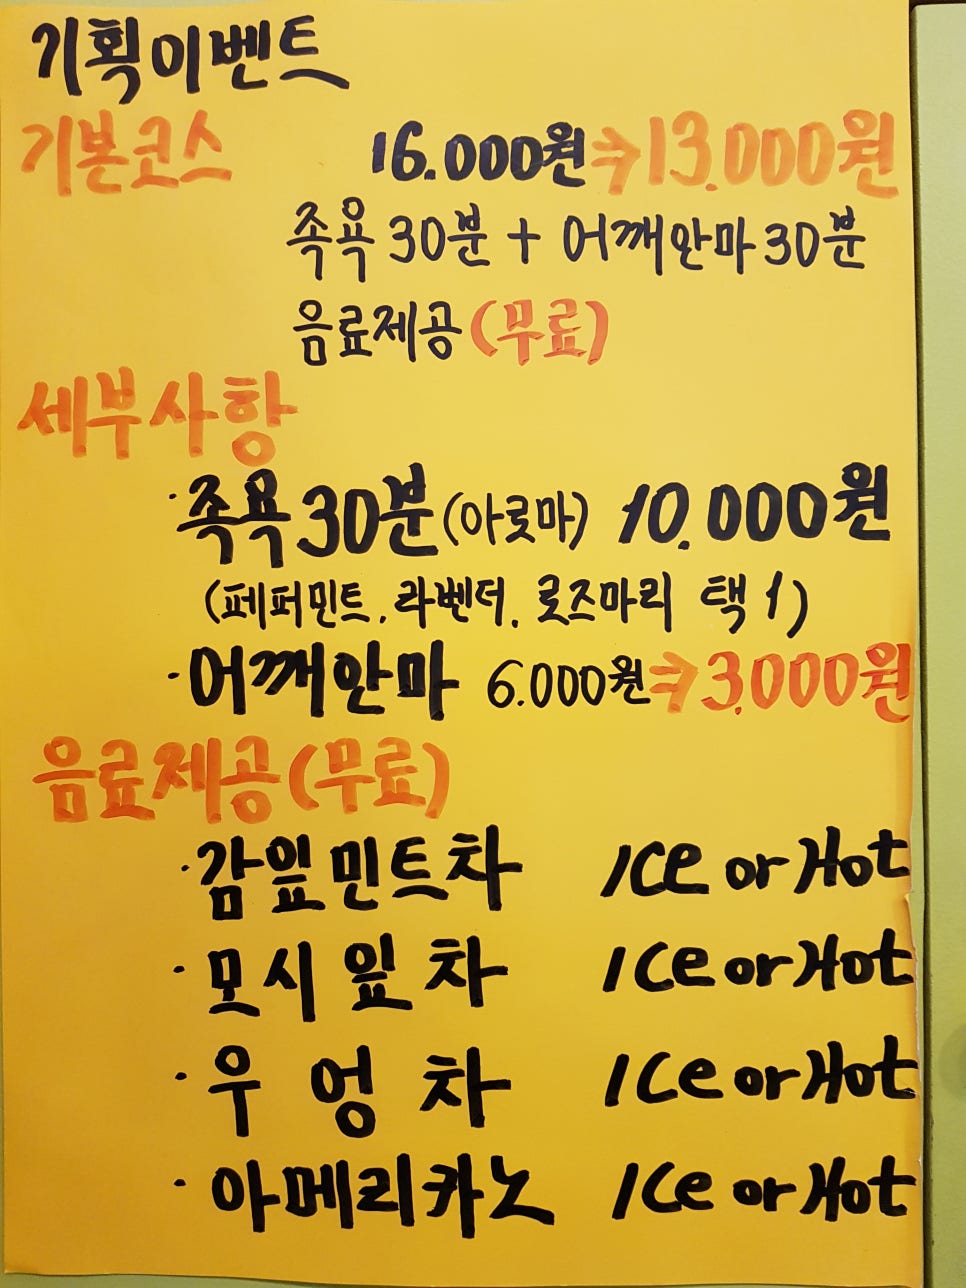 기획이벤트
기본코스 16.000원⇒13.000원
족욕 30분 + 어깨안마 30분
음료제공(무료)
세부사항
·족욕 30분(아롯마) 10.000원
(페퍼민트, 라벤더, 로즈마리 택1)
·어깨안마 6.000원⇒3.000원
음료제공(무료)
·감잎민트차 ICe or Hot
·모시잎차 ICe or Hot
·우엉차 ICe or Hot
·아메리카노 ICe or Hot